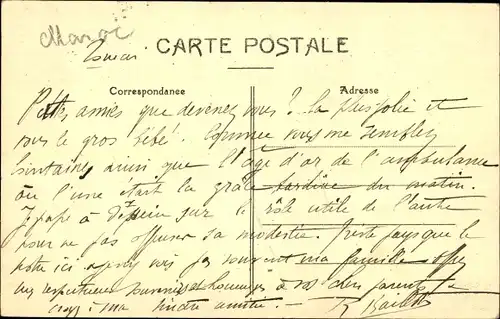 Maroc
CARTE POSTALE
Correspondance
Adresse
Petites amies que devenez vous ? la plus jolie et
vous le gros bébé ! Comme vous me semblez
lointaines ainsi que l'âge d'or de l'ambulance
où l'une était la grâce du matin.
Je passe à dessein sur le rôle utile de l'autre
pour ne pas offenser sa modestie. que le
notre ici ma famille offre
mes respectueux souvenirs et hommages à vos chers parents
croyez à ma tendre amitié